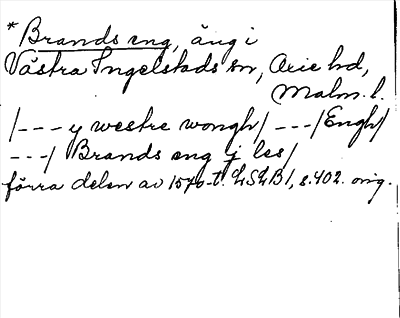 *Brands eng, äng i
Västra Ingelstads sn, Oxie hd,
Malm. l.
/--- y westre wongh/ ---/Engh/
---/ Brands eng j les/
förra delen av 1570-t. LSLB1, s. 402. orig.